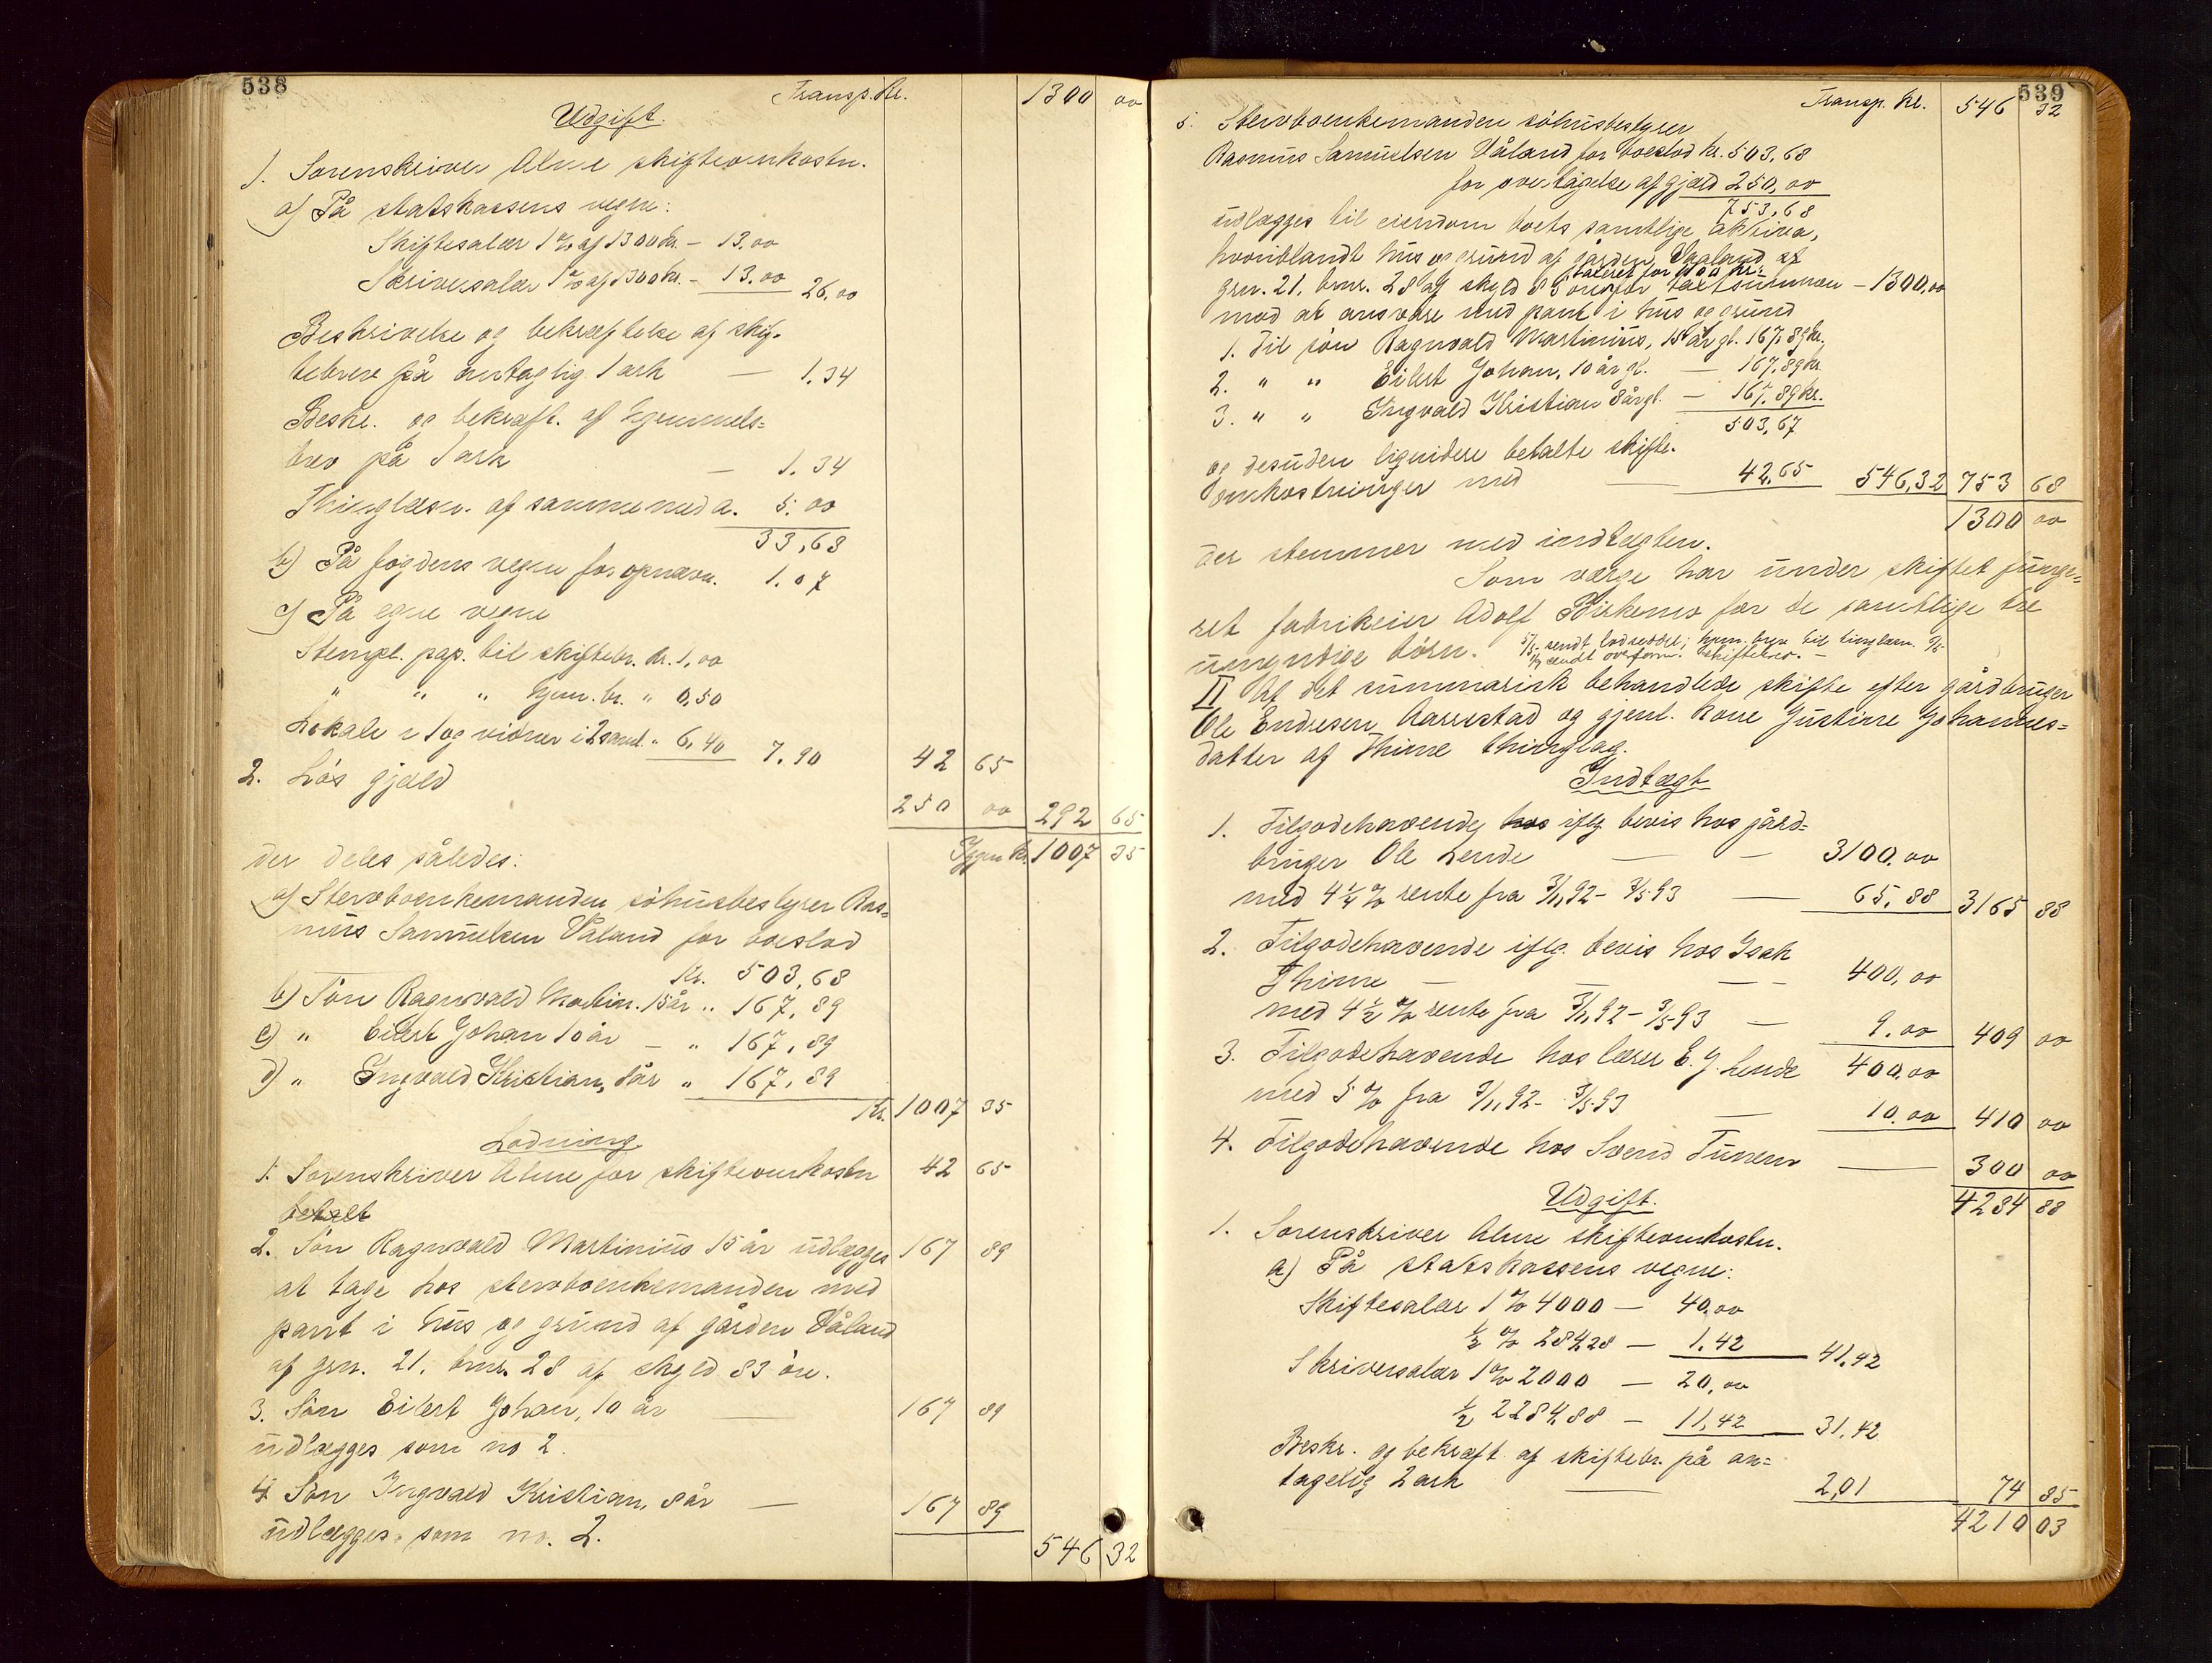 538
Transp. Kr. 1300 00
Udgift.
1. Sorenskriver Alme skifteomkostn.
a) På statskassens vegne:
Skiftesalær 1 % af 1300 kr. – 13.00
Skriversalær 1 % af 1300 kr. – 13.00 26,00
Beskrivelse og bekræftelse af skif-
tebrev på antaglig 1 ark — 1.34
Beskr. og bekræft. af hjemmels-
brev på 1 ark – 1.34
Thinglæsn. af samme med a. 5.00
33,68
b) På fogdens vegne for opnævn. 1.07
c) På egne vegne
Stempl. pap. til skiftebr. kr. 1,00
" " " hjem.br. " 0,50
Lokale 1 og vidner i 2 saml. " 6,40 7.90 42 65
2. Løs gjæld 250 00 292 65
Igjen Kr. 1007 35
der deles således:
a) Stervboenkemanden söhusbestyrer Ras-
mus Samuelsen Våland for boeslod
Kr. 503,68
b) Sön Ragnvald Martin. 15 år " 167,89
c) " Eilert Johan 10 år – " 167,89
d) " Ingvald Kristian, 8 år " 167,89
Kr. 1007 35
Lodning
1. Sorenskriver Alme for skifteomkostn 42 65
betalt
2. Sön Ragnvald Martinius 15 år udlægges 167 89
at tage hos stervboenkemanden med
pant i hus og grund af gården Våland
af grn. 21, brnr. 28 af skyld 83 öre.
3. Sön Eilert Johan, 10 år — 167 89
udlægges som no 2.
4. Sön Ingvald Kristian, 8 år — 167 89
udlægges som no. 2.
546 32
539
Transp. kr. 546 32
5. Stervboenkemanden söhusbestyrer
Rasmus Samuelsen Våland for boeslod kr. 503,68
for overtagelse af gjæld 250,00
753,68
udlægges til eiendom boets samtlige aktiva,
hvoriblandt hus og grund af gården Vaaland af
taxeret for kr:
grn. 21, brnr. 28 af skyld 83 öre for taxtsummen – 1300,00
mod at ansvare med pant i hus og grund
1. til sön Ragnvald Martinius, 15 år gl. 167,89 kr.
2. " " Eilert Johan, 10 år gl. – 167,89 kr
3. " " Ingvald Kristian 8 år gl. – 167,89 kr.
503,67
og desuden liquidere betalte skifte-
omkostninger med — 42,65 546,32 753 68
1300 00
der stemmer med indtægten.
Som værge har under skiftet funge-
ret fabrikeier Adolf Birkemo for de samtlige tre
umyndige börn. 5/5 sendt lodseddel; hjem.brev til tinglæsn.
sendt overform. skiftebrev. –
II At det summarisk behandlede skifte efter gårdbruger
Ole Endresen Aarrestad og gjenl. kone Justine Johannes-
datter af Thime thinglag.
Indtægt
1. Tilgodehavende hos iflg bevis hos gård-
bruger Ole Lende — – 3100.00
med 4 1/4 % rente fra 3/11 92 – 3/5 93 — 65,88 3165 88
2. Tilgodehavende iflg. bevis hos Isak
Thime – – – 400,00
med 4 1/2 % rente fra 3/11 92 – 3/5 93 – 9.00 409 00
3. Tilgodehavende hos lærer E. J. Lende 400,00
med 5 % fra 3/11 92 – 3/5 93 — 10.00 410 00
4. Tilgodehavende hos Svend Tunem — 300 00
4284 88
Udgift.
1. Sorenskriver Alme skifteomkostn.
a) På statskassens vegne:
Skiftesalær 1 % 4000 – 40,00
1/2 % 284,28 – 1.42 41,42
Skriversalær 1 % 2000 – 20,00
1/2 2284,88 – 11,42 31,42
Beskr. og bekræft. af skiftebr. på an-
tagelig 2 ark — 2,01 74 85
4210 03